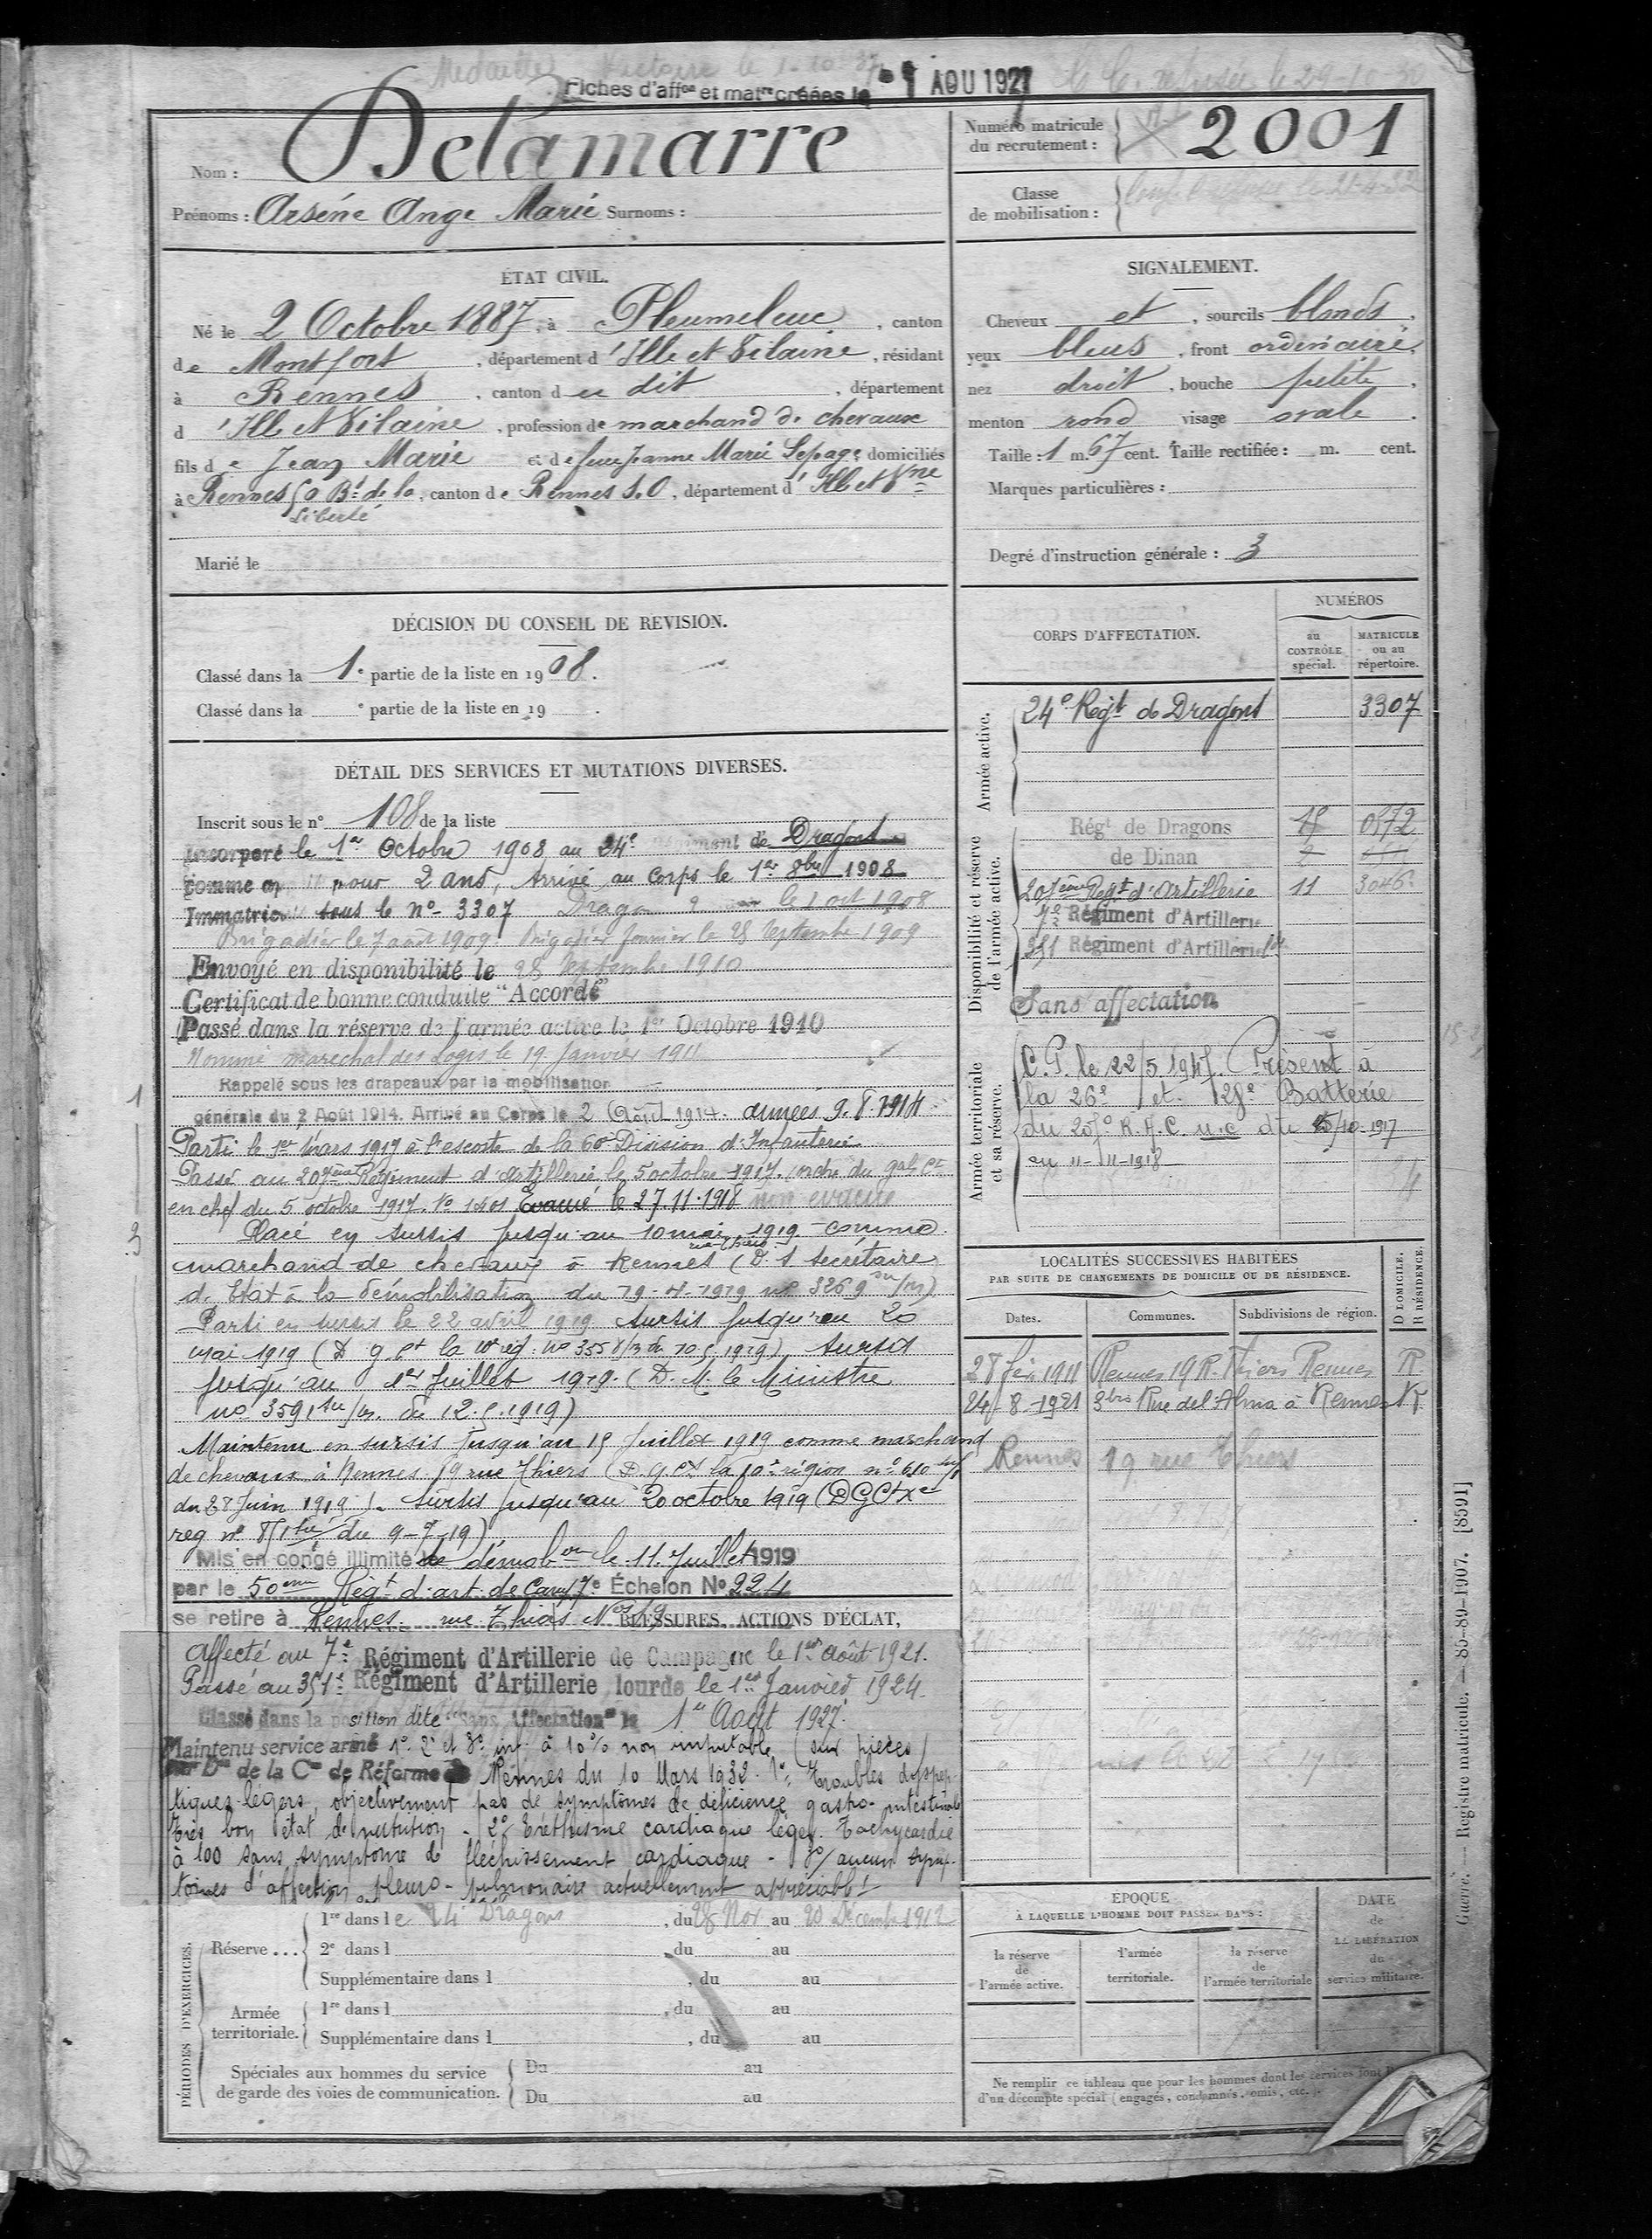 Médaille Victoire le 1-10-37
Fiches d'affon et matre créées le 1 AOU 1927
Nom : Delamarre
Prénoms : Arsène Ange Marie Surnoms :
Numéro matricule du recrutement : 2001
Classe de mobilisation :
ÉTAT CIVIL.
Né le 2 Octobre 1887, à Pleumeleuc, canton
de Montfort, département d'Ille et Vilaine, résidant
à Rennes, canton du dit, département
d'Ille et Vilaine, profession de marchand de chevaux
fils de Jean Marie et de feue Jeanne Marie Lepage, domiciliés
à Rennes Bd de la Liberté, canton de Rennes S.O, département d'Ille et Vne
Marié le
SIGNALEMENT.
Cheveux et, sourcils blonds,
yeux bleus, front ordinaire,
nez droit, bouche petite,
menton rond visage ovale.
Taille : 1 m. 67 cent. Taille rectifiée : m. cent.
Marques particulières :
Degré d'instruction générale : 3
DÉCISION DU CONSEIL DE REVISION.
Classé dans la 1e partie de la liste en 1908.
Classé dans la e partie de la liste en 19 .
DÉTAIL DES SERVICES ET MUTATIONS DIVERSES.
Inscrit sous le n° 108 de la liste
Incorporé le 1er Octobre 1908 au 24e Régiment de Dragons
comme pour 2 ans, Arrivé au Corps le 1er 8bre 1908
Immatriculé sous le N° 3307 Dragon le 1 oct 1908
Brigadier le 7 août 1909. Brigadier fourrier le 28 Septembre 1909
Envoyé en disponibilité le 28 Septembre 1910
Certificat de bonne conduite "Accordé"
Passé dans la réserve de l'armée active le 1er Octobre 1910
Nommé maréchal des Logis le 19 Janvier 1911
Rappelé sous les drapeaux par la mobilisation
générale du 2 Août 1914. Arrivé au Corps le 2 Août 1914. armées 9.8.1914
Parti le 1er Mars 1917 à l'escorte de la 60e Division d'Infanterie
Passé au 207ème Régiment d'Artillerie le 5 octobre 1917. (ordre du gal Ct
en chef du 5 octobre 1917. Evacué le 27.11.1918 non évacué
Placé en sursis jusqu'au 10 mai 1919 comme
marchand de chevaux à Rennes (D. s secrétaire
d'Etat à la démobilisation du 19-4-1919 n° 3269
Parti en sursis le 22 avril 1919 sursis jusqu'au 20
mai 1919 (D g Ct la 10e rég. n° 355 8/m du 10.5.1919), sursis
jusqu'au 1er Juillet 1919. (D. M. le Ministre
n° 3591 du 12.5.1919)
Maintenu en sursis jusqu'au 15 Juillet 1919 comme marchand
de chevaux à Rennes 19 rue Thiers (D. g. Ct la 10e région n° 610
du 28 Juin 1919). Sursis jusqu'au 20 octobre 1919 (DGCtXe
reg n° du 9-7-19)
Mis en congé illimité de démobon le 11 Juillet 1919
par le 50ème Régt d'art. de Camp 7e Échelon No 224
se retire à Rennes rue Thiers No 19
BLESSURES, ACTIONS D'ÉCLAT,
Affecté au 7e Régiment d'Artillerie de Campagne le 1er Août 1921.
Passé au 351e Régiment d'Artillerie lourde le 1er Janvier 1924.
Classé dans la position dite "sans Affectation" le 1er Août 1927.
Maintenu service armé 1° 2° et 3° inf. à 10% non imputable (sur pièces)
Don de la Con de Réforme de Rennes du 10 Mars 1932. 1°, Troubles dyspep-
tiques légers, objectivement pas de symptômes de déficience gastro-intestinale
très bon état de nutrition - 2° Eréthisme cardiaque léger. Tachycardie
à 100 sans symptome de fléchissement cardiaque - 3°/ aucun symp-
tômes d'affection pleuro-pulmonaire actuellement appréciable
PÉRIODES D'EXERCICES.
Réserve ...
1re dans le 24e Dragons, du 28 Nov au 20 Décembre 1912
2e dans l , du au
Supplémentaire dans l , du au
Armée territoriale.
1re dans l , du au
Supplémentaire dans l , du au
Spéciales aux hommes du service de garde des voies de communication.
Du au
Du au
CORPS D'AFFECTATION.
NUMÉROS
au CONTRÔLE spécial.
MATRICULE ou au répertoire.
Armée active.
24e Régt de Dragons 3307
Disponibilité et réserve de l'armée active.
Régt de Dragons 18 0572
de Dinan 2
207ème Régt d'Artillerie 11 3046
7e Régiment d'Artillerie
351 Régiment d'Artillerie lde
Sans affectation
Armée territoriale et sa réserve.
C.P. le 22/5 1947. Présent à
la 26e et 128e Batterie
du 207e R.A.C. u.c du 5/10-1917
au 11-11-1918
LOCALITÉS SUCCESSIVES HABITÉES
PAR SUITE DE CHANGEMENTS DE DOMICILE OU DE RÉSIDENCE.
Dates. Communes. Subdivisions de région. D DOMICILE. R RÉSIDENCE.
28 fév 1911 Rennes 19 R. Thiers Rennes R.
24-8-1921 3bis Rue de l'Alma à Rennes R.
Rennes 19 rue Thiers
ÉPOQUE
À LAQUELLE L'HOMME DOIT PASSER DANS :
la réserve de l'armée active.
l'armée territoriale.
la réserve de l'armée territoriale
DATE de LA LIBÉRATION du service militaire.
Ne remplir ce tableau que pour les hommes dont les services font
d'un décompte spécial (engagés, condamnés, omis, etc.).
Guerre. — Registre matricule. — 85-89-1907. [8591]
1
3